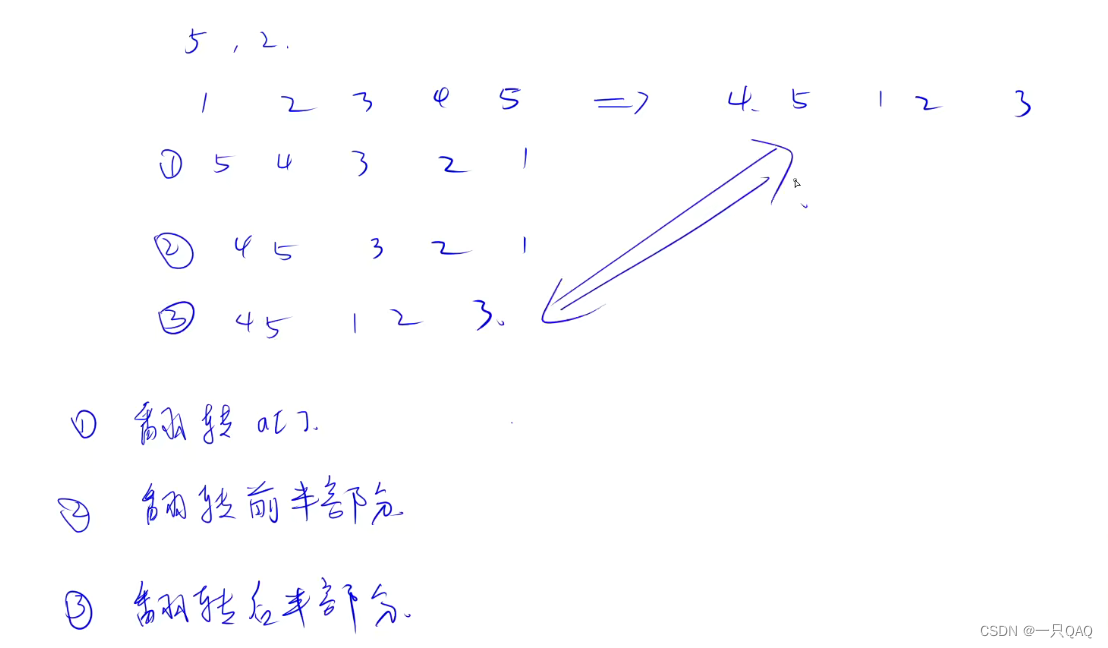 5 , 2.
1 2 3 4 5 => 4. 5 1 2 3
① 5 4 3 2 1
② 4 5 3 2 1
③ 4 5 1 2 3.
① 翻转 a[ ].
② 翻转前半部分
③ 翻转后半部分.
CSDN @一只QAQ